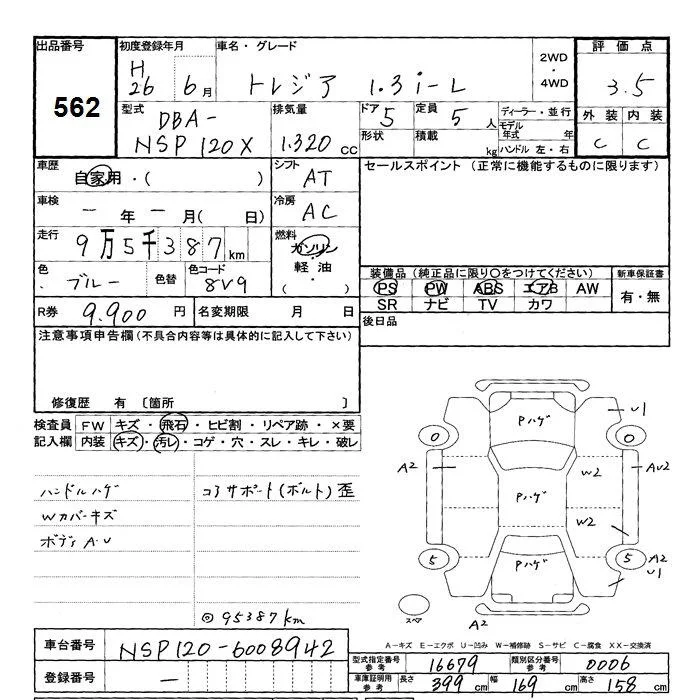 出品番号 初度登録年月 車名・グレード 評価点
562
H 26 6月 トレジア 1.3 i-L 2WD・4WD 3.5
型式 排気量 ドア 定員 ディーラー・並行 外装 内装
DBA-NSP120X 1.320cc 5 5人 モデル年式 年 C C
形状 積載 kg ハンドル 左・右
車歴 自家用・( ) シフト AT セールスポイント(正常に機能するものに限ります)
車検 ー年ー月( 日) 冷房 AC
走行 9万5千387km 燃料 ガソリン・軽油・( )
色 ブルー 色替 色コード 8V9
装備品(純正品に限り○をつけてください) 新車保証書
PS PW ABS エアB AW 有・無
SR ナビ TV カワ
R券 9.900円 名変期限 月 日 後日品
注意事項申告欄(不具合内容等は具体的に記入して下さい)
修復歴 有 〔箇所 〕
検査員 FW キズ・飛石・ヒビ割・リペア跡・×要
記入欄 内装 キズ・汚レ・コゲ・穴・スレ・キレ・破レ
ハンドルハゲ コアサポート(ボルト)歪
Wカバーキズ
ボディA.U
◎95387km
Pハゲ U1
0 0
A2 W2 AU2
Pハゲ
W2
5 Pハゲ 5 A2
U1
スペア A2
A-キズ E-エクボ U-凹み W-補修跡 S-サビ C-腐食 XX-交換済
車台番号 NSP120-6008942
型式指定番号 参考 16679 類別区分番号 参考 0006
登録番号 ー
車庫証明用 参考 長さ 399cm 幅 169cm 高さ 158cm